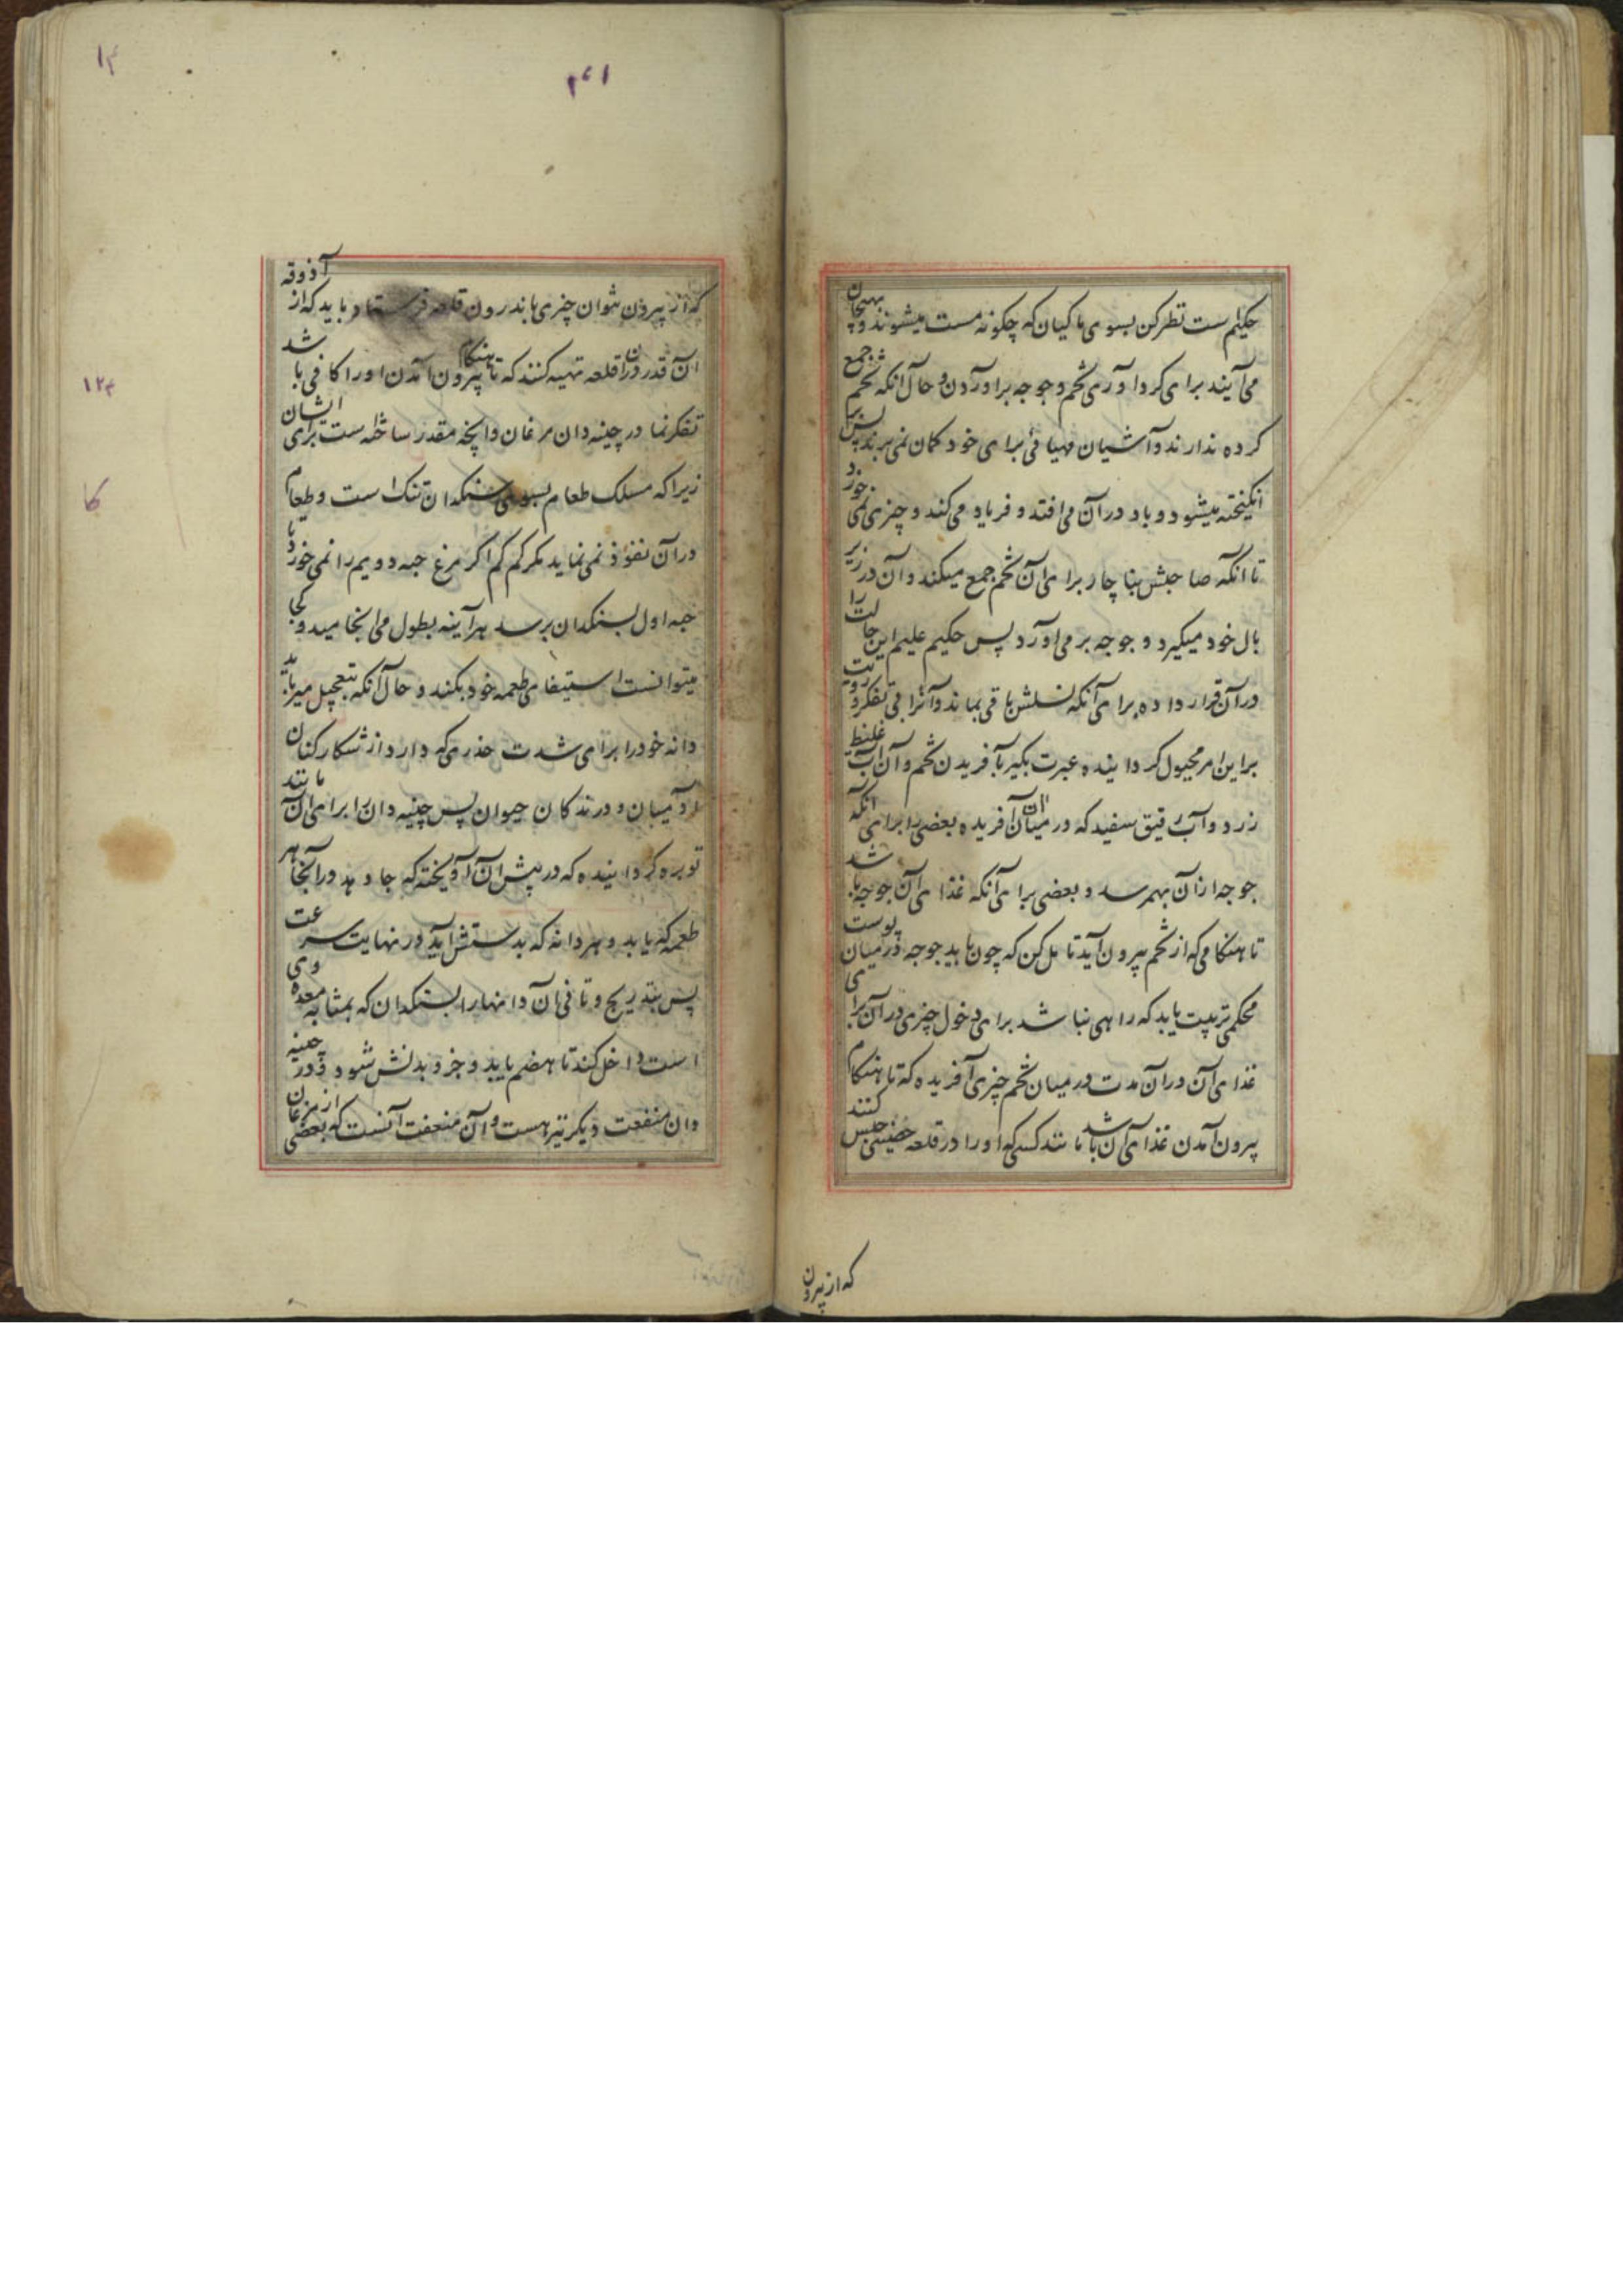 حکیم است نظر کن بسوی ماکیان که چکونه مست میشوند و بهیجان
می‌آیند برای کرد آوری تخم و جوجه برآوردن و حال آنکه تخم جمع
کرده ندارند و آشیان مهیائی برای خود کمان نمی‌برند پس برا
انکیخته میشود و باد در آن می‌افتد و فریاد می‌کند و چیزی نمی‌خورد
تا انکه صاحبش بناچار برای آن تخم جمع میکند و آن در زیر
بال خود میکیرد و جوجه بر می‌آورد پس حکیم علیم این حالت را
در آن قرار داده برای آنکه نسلش باقی بماند و آنرا بی تفکر و رویت
براین امر مجبول کردانیده عبرت بکیر بآفریدن تخم و آن آب غلیظ
زرد و آب رقیق سفید که در میان آن آفریده بعضی را برای انکه
جوجه از آن بهمرسد و بعضی برای آنکه غذای آن جوجه باشد
تا هنکامی که از تخم بیرون آید تامل کن که چون باید جوجه در میان پوست
محکمی تربیت یابد که راهی نباشد برای دخول چیزی در آن برای
غذای آن در آن مدت در میان تخم چیزی آفریده که تا هنکام
بیرون آمدن غذای آن باشد مانند کسی که او را در قلعه حصینی حبس کنند
که از بیرون
۱۳
که از بیرون نتوان چیزی باندرون قلعه فرستاد و باید که از آذوقه
آن قدر در آن قلعه تهیه کنند که تا هنکام بیرون آمدن او را کافی باشد
تفکر نما در چینه‌دان مرغان و آنچه مقدر ساخته است برای ایشان
زیرا که مسلک طعام بسوی سنکدان تنک است و طعام
در آن نفوذ نمی‌نماید مکر کم کم اکر مرغ حبه دویم را نمی‌خورد تا
حبه اول بسنکدان برسد هر آینه بطول می‌انجامید و کی
میتوانست استیفای طعمه خود بکند و حال آنکه بتعجیل میرباید
دانه خود را برای شدت حذری که دارد از شکار کنان
از آدمیان و درندکان حیوان پس چینه‌دان را برای آن مانند
توبره کردانیده که در پیش آن آویخته که جا دهد در آنجا هر
طعمه که یابد و هر دانه که بدستش آید در نهایت سرعت
پس بتدریج و تانی آن دانهارا بسنکدان که بمثابه معده وی
است داخل کند تا هضم یابد و جزو بدنش شود و در چینه
دان منفعت دیکر نیز هست و آن منفعت آنست که بعضی از مرغان
۱۲۳